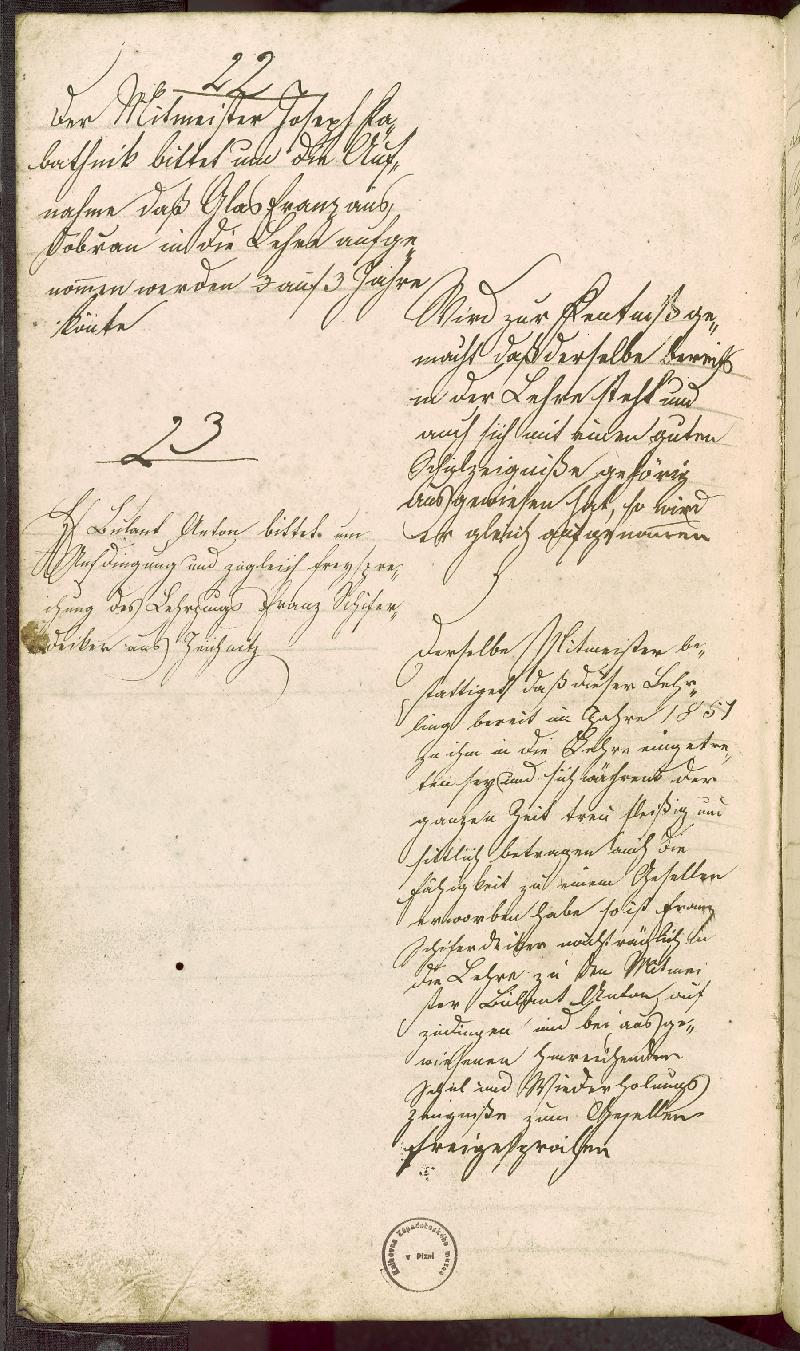 22
Der Mitmeister Joseph Ka„
bathnik bittet um die Auf„
nahme daß Glas Franz aus
Dobrzan in die Lehre aufge„
nommen werden 3 auf 3 Jahre
könte
Wird zur Kentniß ge„
macht daß derselbe bereits
in der Lehre steht und
auch sich mit einen guten
Schulzeigniße gehörig
ausgewiesen hat, so wird
er gleich aufgenommen
23
Bulant Anton bittet um
Aufdingung und zugleich freyspre„
chung des Lehrjungs Franz Schifer„
decker aus
Derselbe Mitmeister be„
stattiget daß dieser Lehr„
ling bereit im Jahre 1851
zu ihm in die Lehre eingetre„
ten sey und sich während der
ganzen Zeit treu fleißig und
sittlich betragen auch die
Fähigkeit zu einem Gesellen
erworben habe so ist Franz
Schiferdecker nachträglich in
die Lehre zu den Mitmei
ster Bulant Anton auf
zudingen und bei ausge„
wiesenen hinreichenden
Schul und Wiederholungs
zeugniße zum Gesellen
freigesprochen
Knihovna Západočeského musea
v Plzni